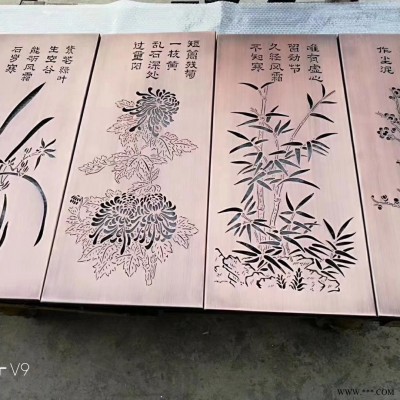 紫茎绿叶
生空谷
能听风霜
石岁寒
短篱残菊
一枝黄
乱石深处
过重阳
唯有虚心
留劲节
久经风霜
不知寒
作尘泥
V9
WWW.***.COM